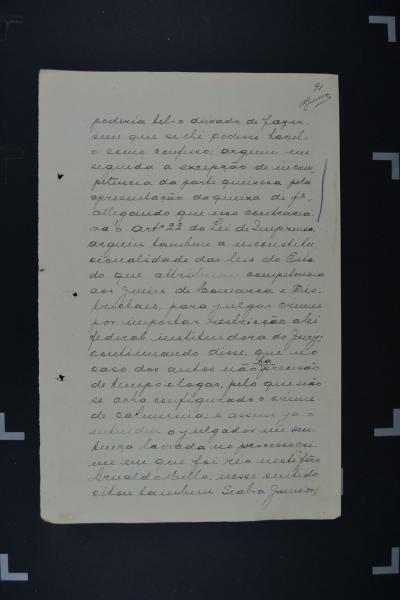 91
poderia tel-o deixado de fazer
sem que se lhe podesse havel-
o como confesso; arguiu em
seguida a excepção de incom-
petencia da parte queixosa pela
apresentação da queixa de fs,
allegando que isso contraria-
va o artº 22 da Lei de Imprensa,
arguiu tambem a inconstitu-
cionalidade das leis do Esta-
do que attribuiam competencia
aos Juizes de Comarca e Dis-
trictaes, para julgar crimes
por importar restricção a lei
federal instituidora do Jury;
continuando disse, que no
caso dos autos não ha precisão
de tempo e logar, pelo que não
se acha configurado o crime
de calumnia; e assim já o
entendeu o julgador em sen-
tença lavrada no processo cri-
me em que foi réo neste fôro
Arnaldo Mello; nesse sentido
citou tambem Seabra Junior;